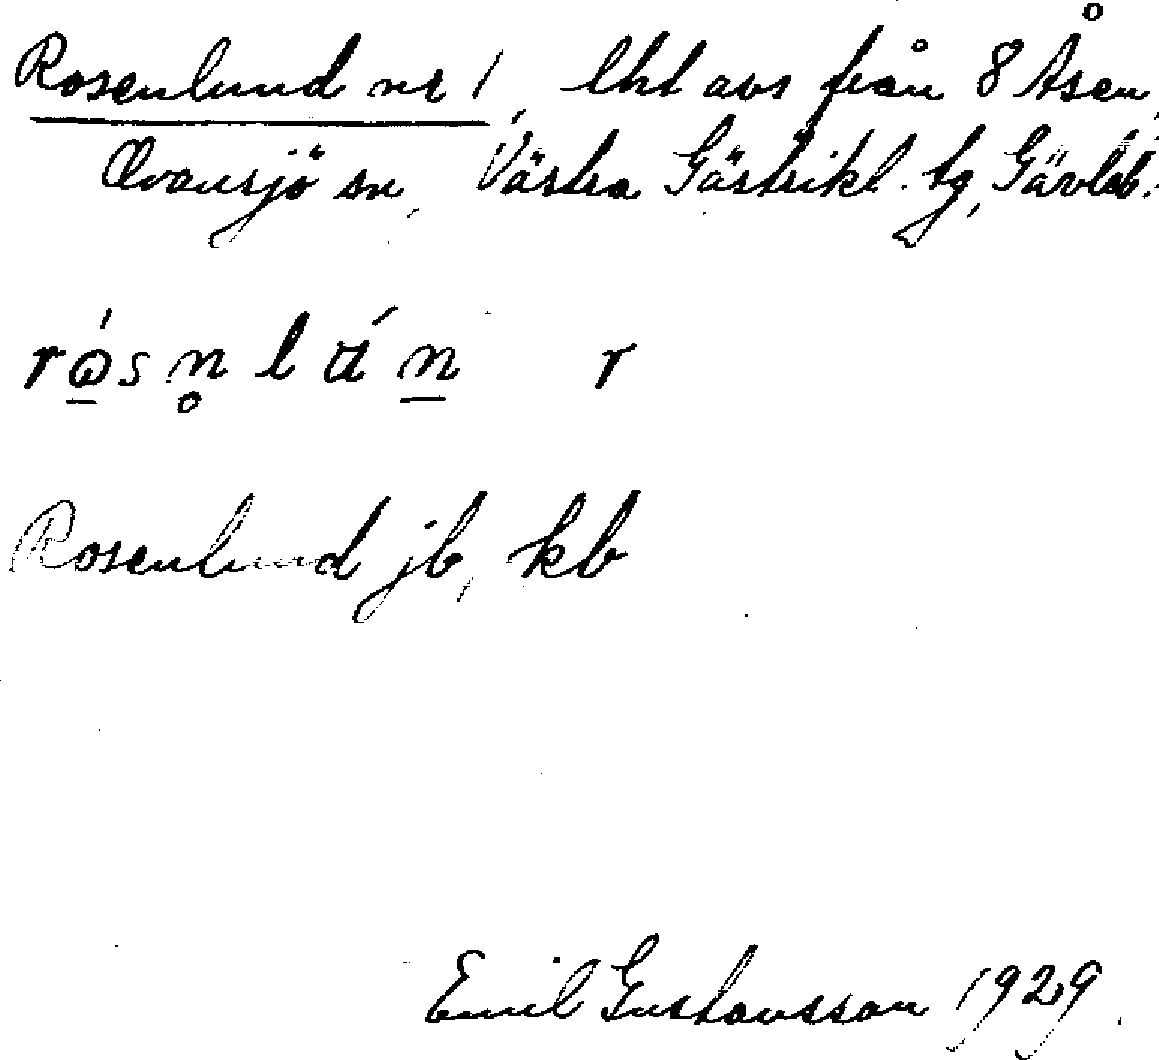 Rosenlund nr 1, lht avs från 8 Åsen,
Ovansjö sn, Västra Gästrikl. tg, Gävleb.
Rosenlund jb, kb
Emil Gustavsson 1929.